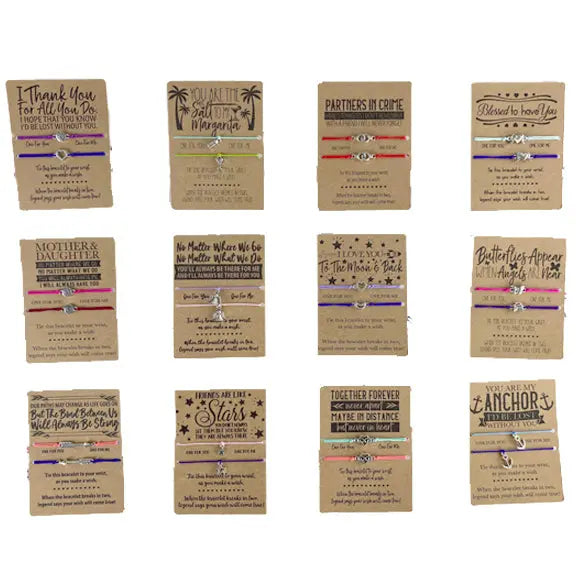 I THANK YOU
FOR ALL YOU DO.
I HOPE THAT YOU KNOW
I'D BE LOST WITHOUT YOU.
One For You One For Me
Tie this bracelet to your wrist,
as you make a wish.
When the bracelet breaks in two,
legend says your wish will come true!
YOU ARE THE
Salt TO MY
Margarita
ONE FOR YOU ONE FOR ME
PARTNERS IN CRIME
WITH A FRIEND WILL NEVER FORGET!
ONE FOR YOU ONE FOR ME
Blessed to have You
ONE FOR YOU ONE FOR ME
Tie this bracelet to your wrist,
as you make a wish.
When the bracelet breaks in two,
legend says your wish will come true!
MOTHER &
DAUGHTER
NO MATTER WHERE WE GO
NO MATTER WHAT WE DO
I WILL ALWAYS HAVE YOU
ONE FOR YOU ONE FOR ME
Tie this bracelet to your wrist,
as you make a wish.
When the bracelet breaks in two,
legend says your wish will come true!
No Matter Where We Go
No Matter What We Do
YOU'LL ALWAYS BE THERE FOR ME
AND I'LL ALWAYS BE THERE FOR YOU
One For You One For Me
Tie this bracelet to your wrist,
as you make a wish.
When the bracelet breaks in two,
legend says your wish will come true!
I LOVE YOU
TO THE MOON & BACK
ONE FOR YOU ONE FOR ME
Tie this bracelet to your wrist,
as you make a wish.
When the bracelet breaks in two,
legend says your wish will come true!
Butterflies Appear
WHEN ANGELS ARE NEAR
ONE FOR YOU ONE FOR ME
TIE THIS BRACELET TO YOUR WRIST
AS YOU MAKE A WISH
WHEN THE BRACELET BREAKS IN TWO
LEGEND SAYS YOUR WISH WILL COME TRUE
OUR PATHS MAY CHANGE AS LIFE GOES ON
BUT THE BOND BETWEEN US
WILL ALWAYS BE STRONG
ONE FOR YOU ONE FOR ME
Tie this bracelet to your wrist,
as you make a wish.
When the bracelet breaks in two,
legend says your wish will come true!
FRIENDS ARE LIKE
Stars
YOU DON'T ALWAYS
SEE THEM, BUT YOU KNOW
THEY ARE ALWAYS THERE
ONE FOR YOU ONE FOR ME
Tie this bracelet to your wrist,
as you make a wish.
When the bracelet breaks in two,
legend says your wish will come true!
TOGETHER FOREVER
never apart
MAYBE IN DISTANCE
but never in heart
ONE FOR YOU ONE FOR ME
Tie this bracelet to your wrist,
as you make a wish.
When the bracelet breaks in two,
legend says your wish will come true!
YOU ARE MY
ANCHOR
I'D BE LOST
WITHOUT YOU
ONE FOR YOU ONE FOR ME
Tie this bracelet to your wrist,
as you make a wish.
When the bracelet breaks in two,
legend says your wish will come true!